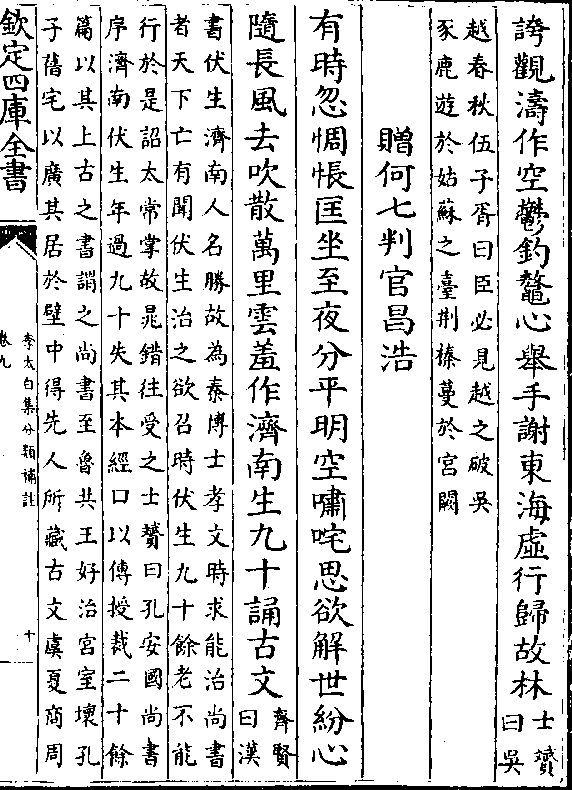 誇觀濤作空鬱釣鼇心舉手謝東海虛行歸故林士贇
曰吳
越春秋伍子胥曰臣必見越之破吳
豕鹿遊於姑蘇之臺荆榛蔓於宮闕
贈何七判官昌浩
有時忽惆悵匡坐至夜分平明空嘯咤思欲解世紛心
隨長風去吹散萬里雲羞作濟南生九十誦古文齊賢
曰漢
書伏生濟南人名勝故為秦博士孝文時求能治尚書
者天下亡有聞伏生治之欲召時伏生九十餘老不能
行於是詔太常掌故晁錯往受之士贇曰孔安國尚書
序濟南伏生年過九十失其本經口以傳授裁二十餘
篇以其上古之書謂之尚書至魯共王好治宮室壞孔
子舊宅以廣其居於壁中得先人所藏古文虞夏商周
欽定四庫全書
李太白集分類補註
卷九
十